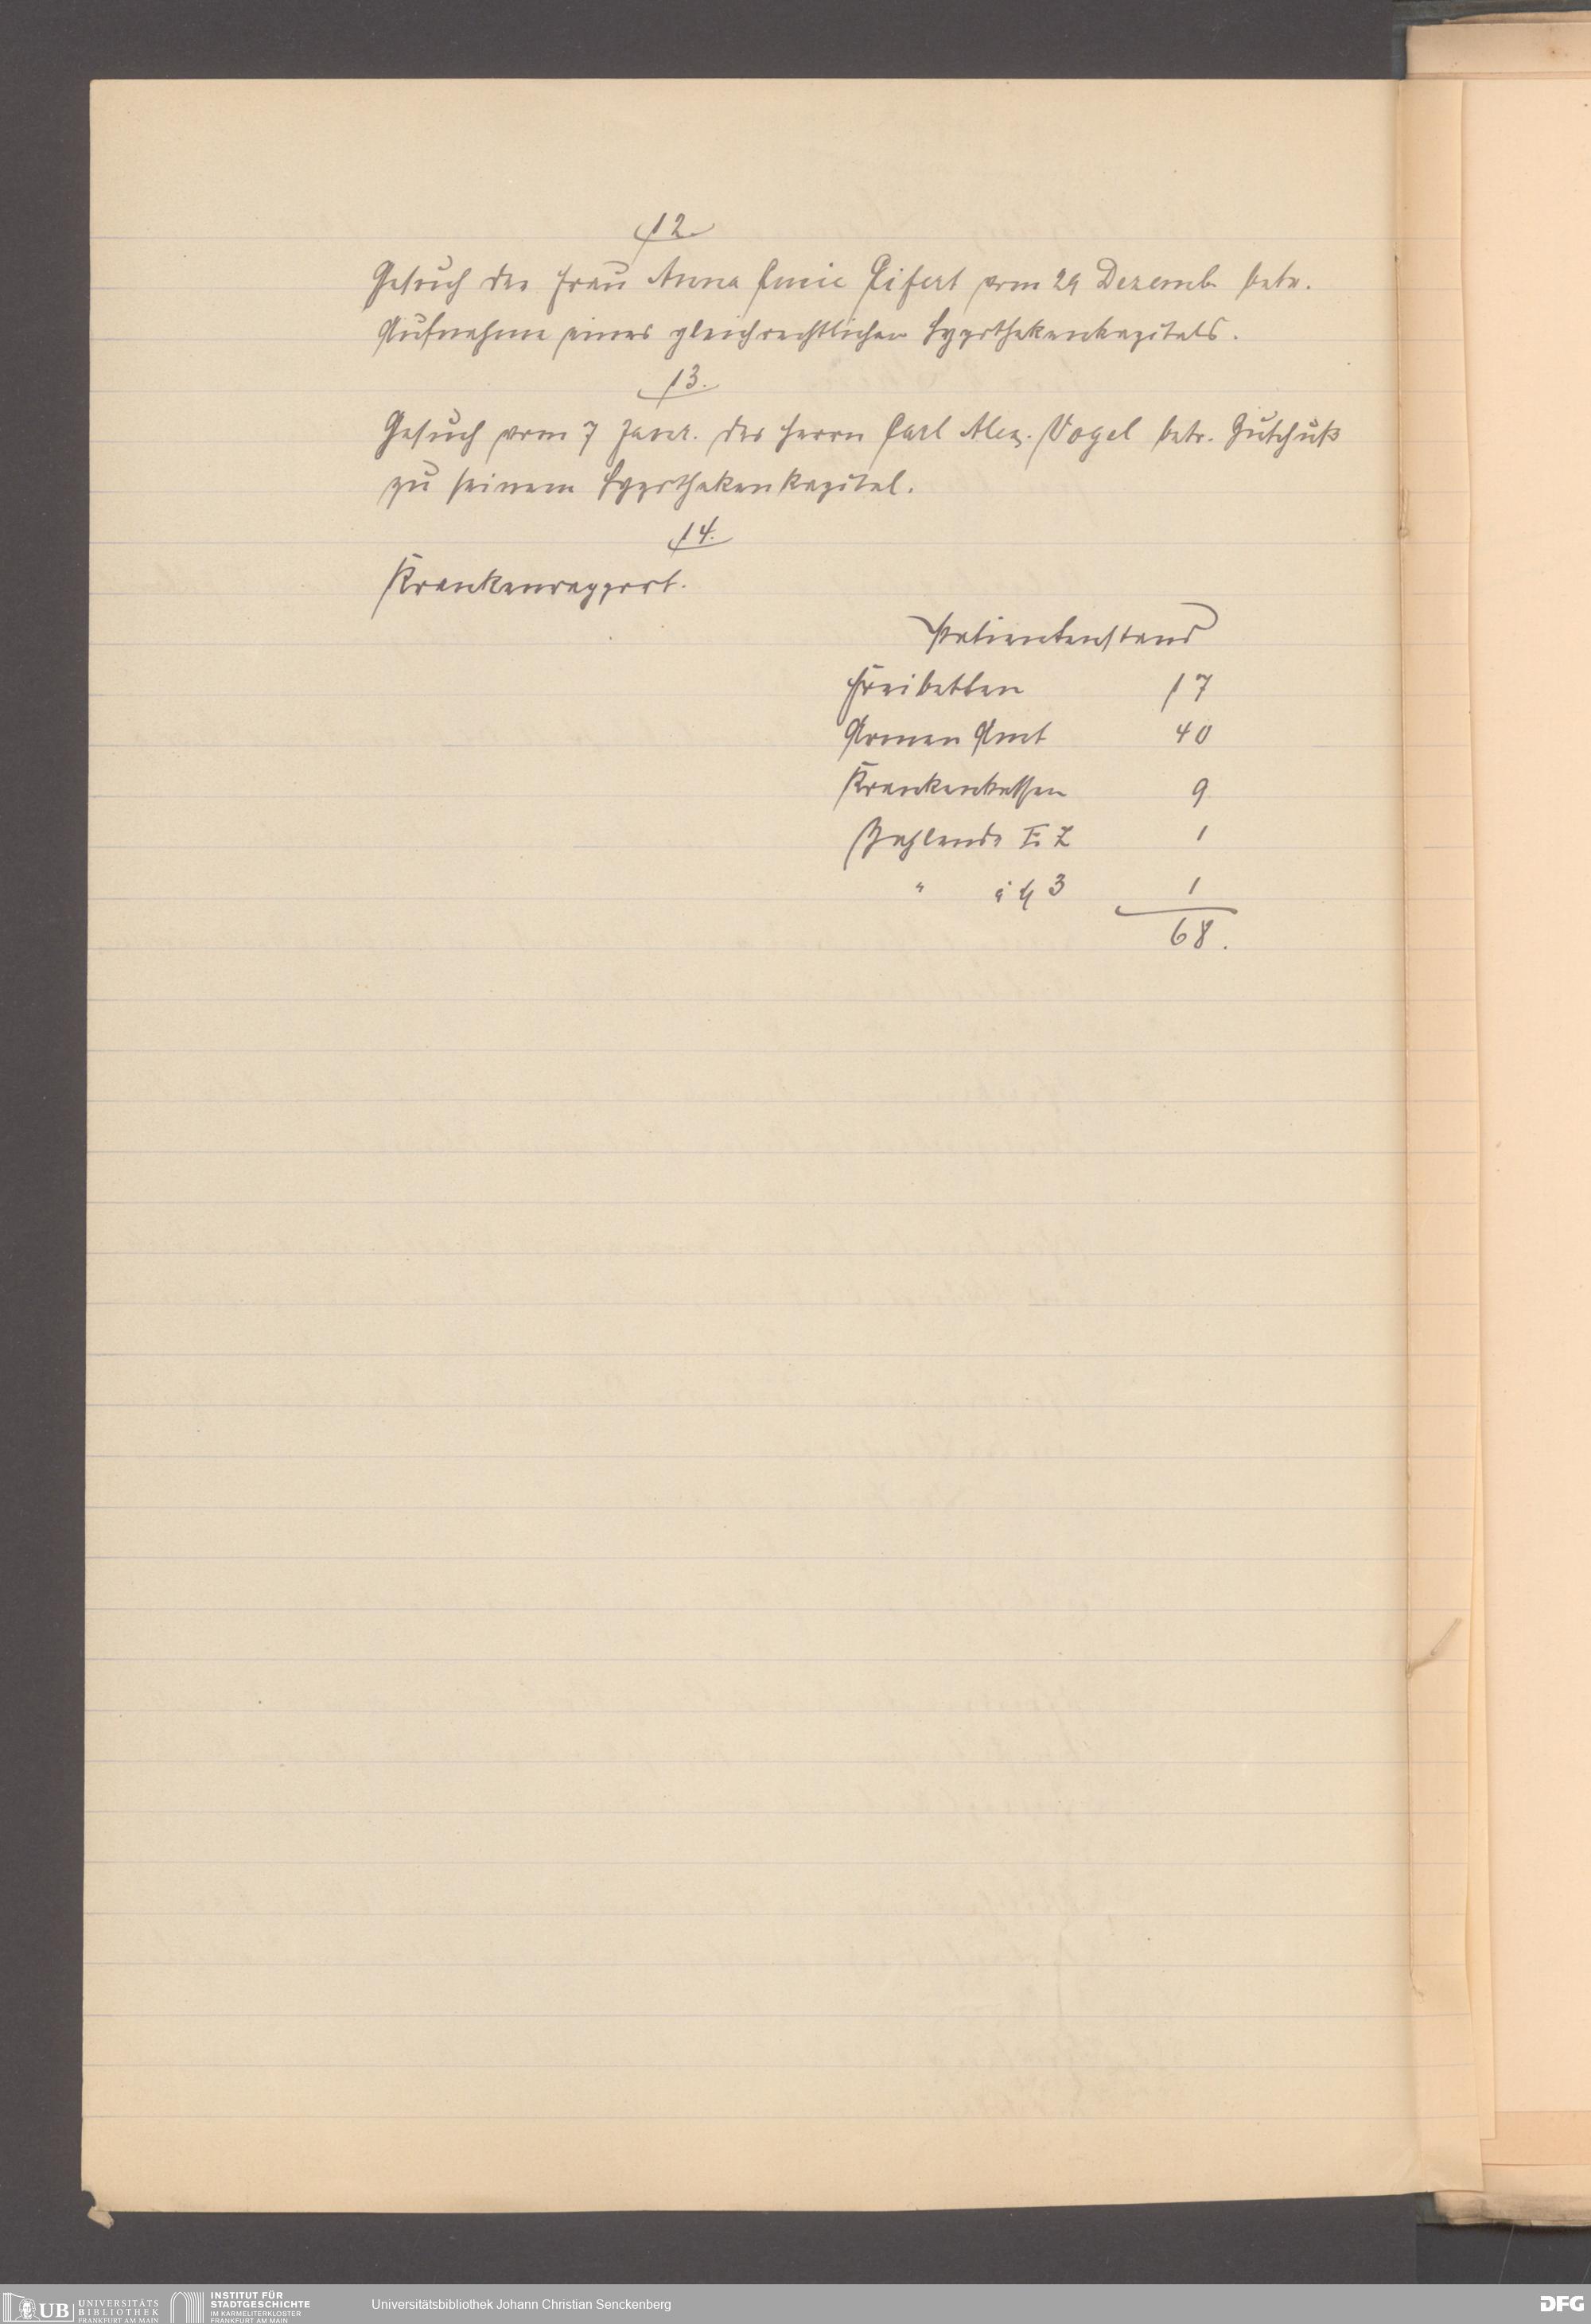 12.
Gesuch der Frau Anna Eifert vom 29 Dezemb. betr.
Aufnahme eines gleichrechtlichen Hypothekenkapitals.
13.
Gesuch vom 7 Januar. des Herrn Carl Alex. Vogel betr. Zuschuß
zu seinem Hypothekenkapital.
14.
Krankenrapport.
Patientenstand
Freibetten 17
Armen Amt 40
Krankenkassen 9
Zahlende 1
" à M 3 1
68.
UB UNIVERSITÄTS BIBLIOTHEK FRANKFURT AM MAIN
INSTITUT FÜR STADTGESCHICHTE IM KARMELITERKLOSTER FRANKFURT AM MAIN
Universitätsbibliothek Johann Christian Senckenberg
DFG